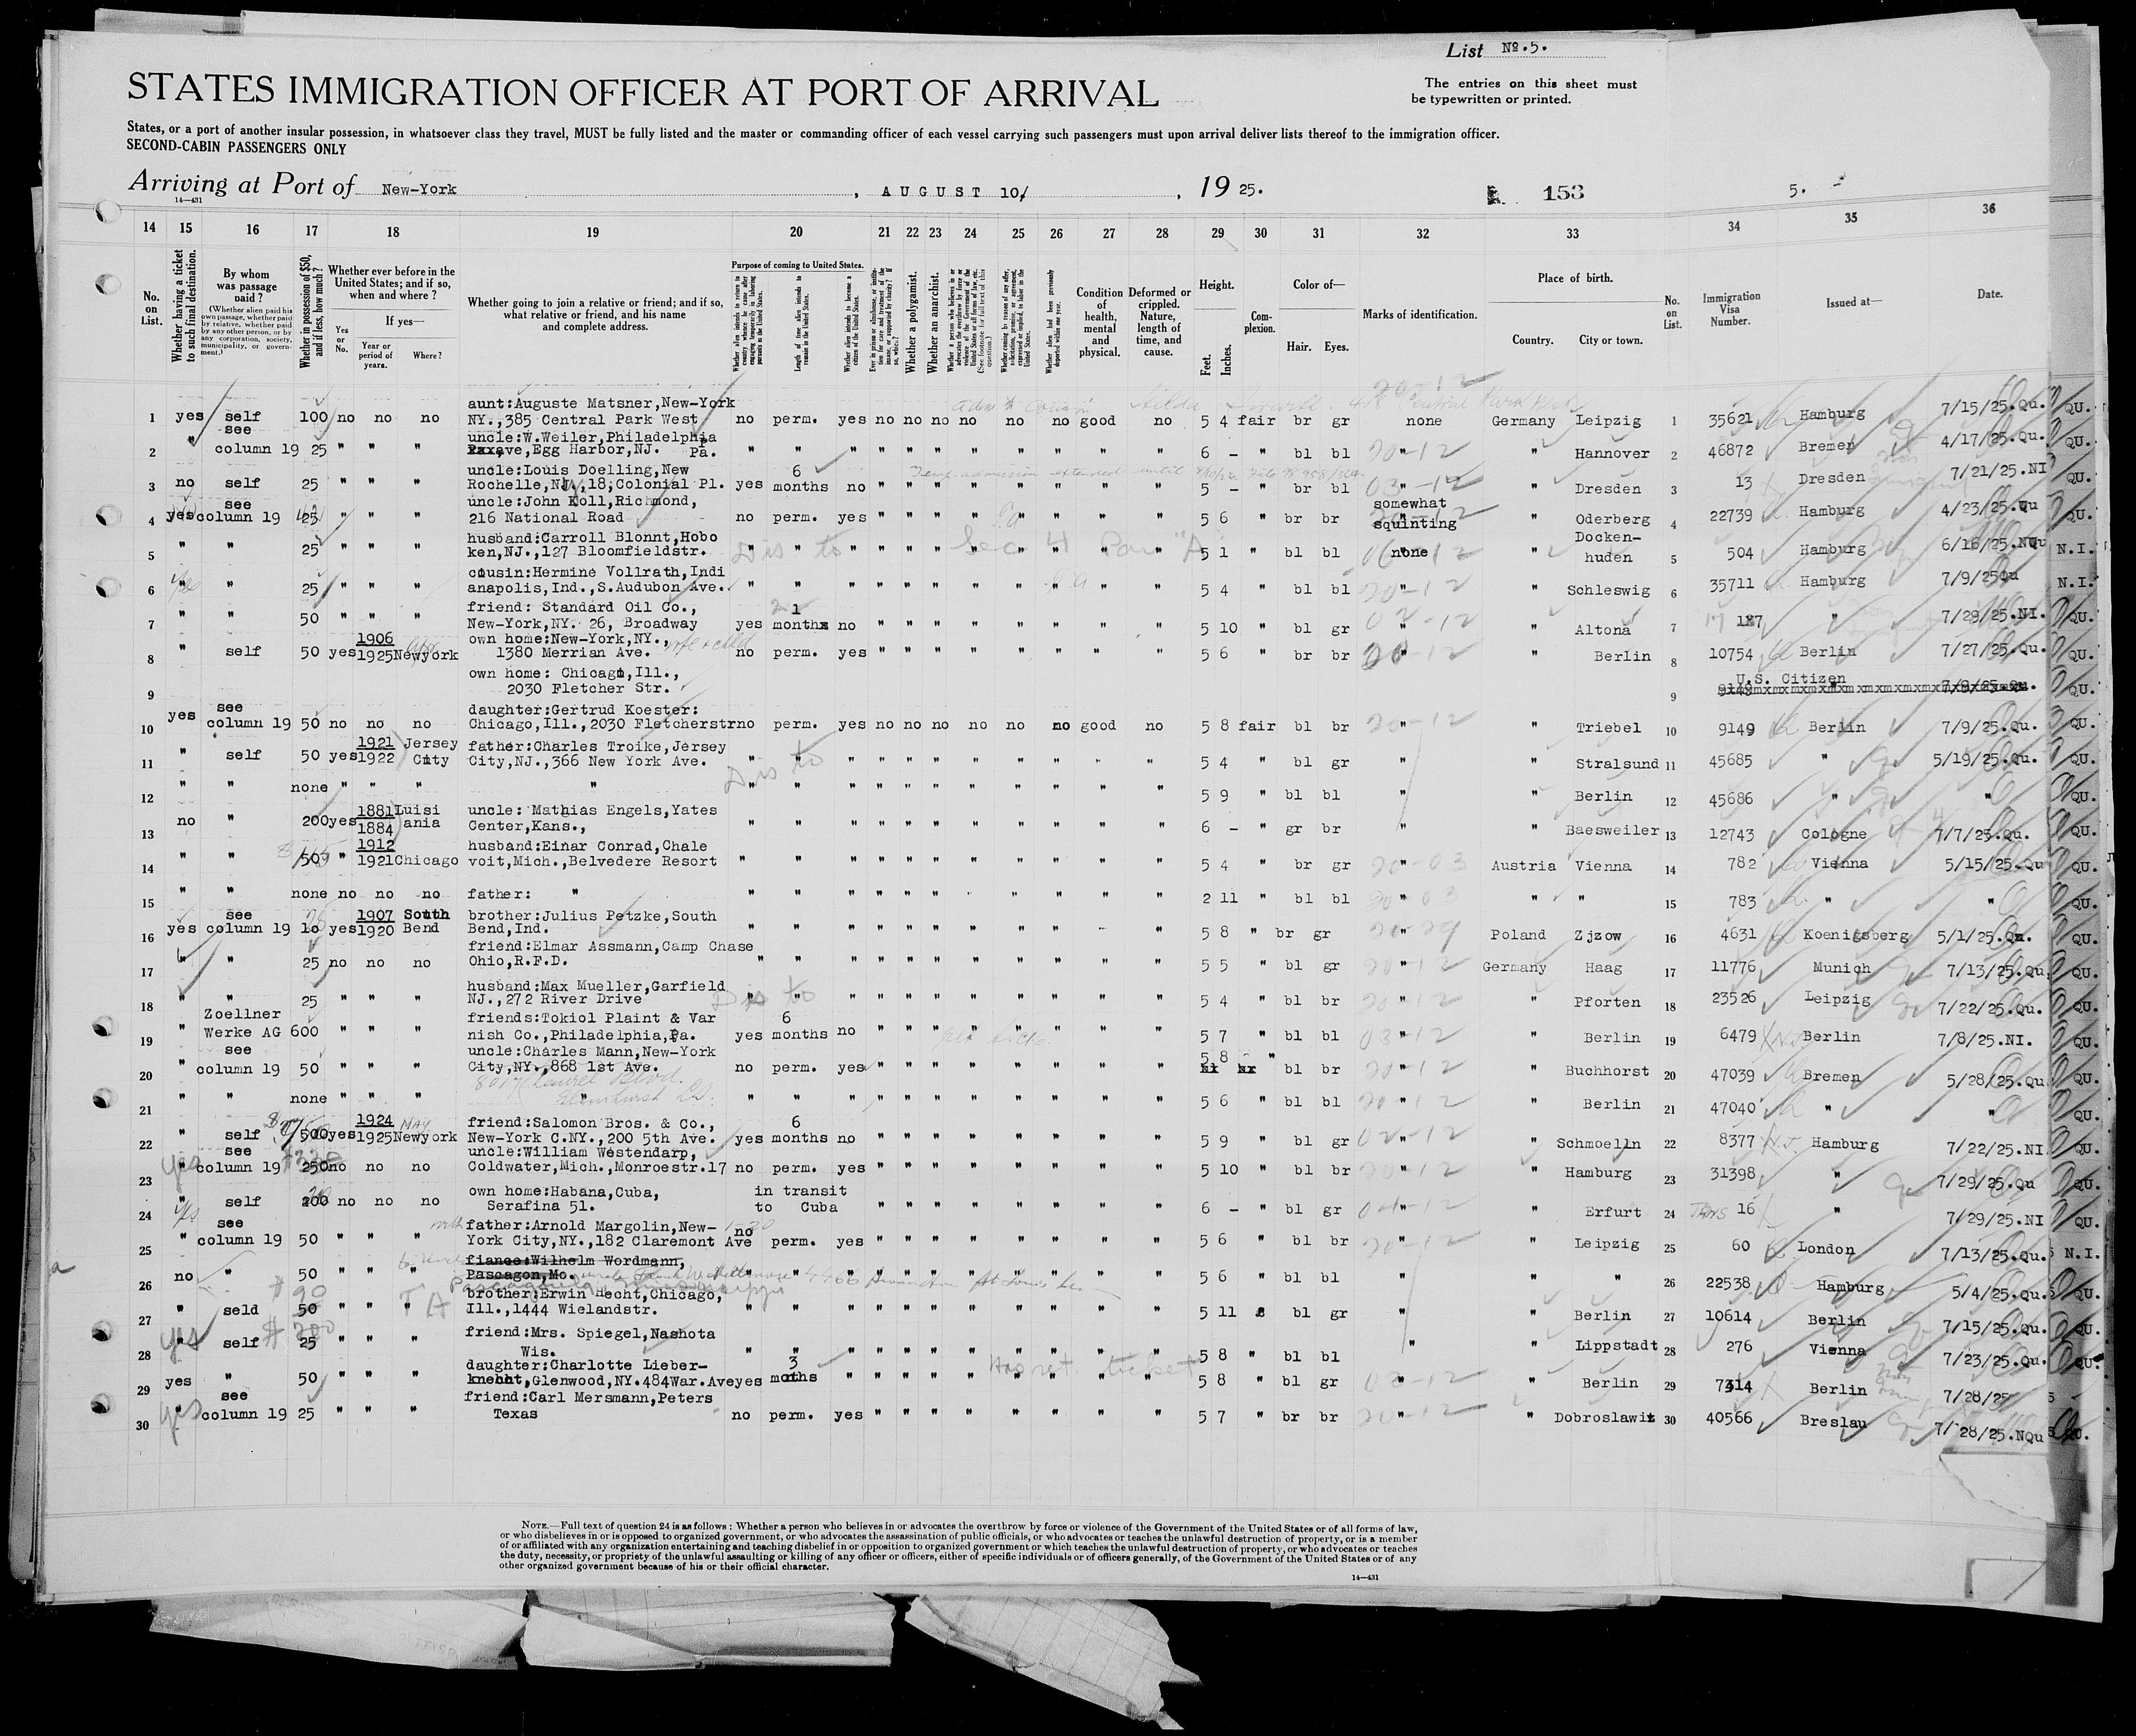 List No. 5.
STATES IMMIGRATION OFFICER AT PORT OF ARRIVAL
The entries on this sheet must
be typewritten or printed.
States, or a port of another insular possession, in whatsoever class they travel, MUST be fully listed and the master or commanding officer of each vessel carrying such passengers must upon arrival deliver lists thereof to the immigration officer.
SECOND-CABIN PASSENGERS ONLY
Arriving at Port of New-York, AUGUST 10/, 19 25. 153 5.
14—431
14 15 16 17 18 19 20 21 22 23 24 25 26 27 28 29 30 31 32 33 34 35 36
No. on List.
Whether having a ticket to such final destination.
By whom was passage paid?
(Whether alien paid his own passage, whether paid by relative, whether paid by any other person, or by any corporation, society, municipality, or government.)
Whether in possession of $50, and if less, how much?
Whether ever before in the United States; and if so, when and where?
Yes or No.
If yes—
Year or period of years.
Where?
Whether going to join a relative or friend; and if so, what relative or friend, and his name and complete address.
Purpose of coming to United States.
Length of time alien intends to remain in the United States.
Whether alien intends to become a citizen of the United States.
Whether a polygamist.
Whether an anarchist.
Condition of health, mental and physical.
Deformed or crippled. Nature, length of time, and cause.
Height.
Feet. Inches.
Complexion.
Color of—
Hair. Eyes.
Marks of identification.
Place of birth.
Country. City or town.
No. on List.
Immigration Visa Number.
Issued at—
Date.
aunt:Auguste Matsner,New-York
1 yes self 100 no no no NY.,385 Central Park West no perm. yes no no no no no no good no 5 4 fair br gr none Germany Leipzig 1 35621 Hamburg 7/15/25.Qu. QU.
see uncle:W.Weiler,Philadelphia
2 " column 19 25 " " " ave,Egg Harbor,NJ. Pa. " " " " " " " " " " " 6 - " bl bl " " Hannover 2 46872 Bremen 4/17/25.Qu. QU.
uncle:Louis Doelling,New 6
3 no self 25 " " " Rochelle,NJ.,18,Colonial Pl. yes months no " " " " " " " " 5 - " br bl " " Dresden 3 13 Dresden 7/21/25.NI QU.
see uncle:John Koll,Richmond, somewhat
4 yes column 19 25 " " " 216 National Road no perm. yes " " " " " " " " 5 6 " br br squinting " Oderberg 4 22739 Hamburg 4/23/25.Qu QU.
husband:Carroll Blonnt,Hobo Docken-
5 " " 25 " " " ken,NJ.,127 Bloomfieldstr. " " " " " " " " " " " 5 1 " bl bl none " huden 5 504 Hamburg 6/16/25.NQu N.I.
cousin:Hermine Vollrath,Indi
6 " " 25 " " " anapolis,Ind.,S.Audubon Ave. " " " " " " " " " " " 5 4 " bl bl " " Schleswig 6 35711 Hamburg 7/9/25Qu N.I.
friend: Standard Oil Co., 1
7 " " 50 " " " New-York,NY. 26, Broadway yes months no " " " " " " " " 5 10 " bl gr " " Altona 7 187 " 7/29/25.NI. QU.
1906 own home:New-York,NY.,
8 " self 50 yes 1925 Newyork 1380 Merrian Ave. no perm. yes " " " " " " " " 5 6 " br br " " Berlin 8 10754 Berlin 7/27/25.Qu. QU.
own home: Chicago,Ill., U.S. Citizen
9 2030 Fletcher Str. 9 9149 7/9/25.Qu. QU.
see daughter:Gertrud Koester:
10 yes column 19 50 no no no Chicago,Ill.,2030 Fletcherstr no perm. yes no no no no no no good no 5 8 fair bl br " " Triebel 10 9149 Berlin 7/9/25.Qu. QU.
1921 Jersey father:Charles Troike,Jersey
11 " self 50 yes 1922 City City,NJ.,366 New York Ave. " " " " " " " " " " " 5 4 " bl gr " " Stralsund 11 45685 " 5/19/25.Qu. QU.
12 " " none " " " " " " " " " " " " " " " " 5 9 " bl bl " " Berlin 12 45686 " " QU.
1881 Luisi uncle: Mathias Engels,Yates
13 no " 200 yes 1884 ania Center,Kans., " " " " " " " " " " " 6 - " gr br " " Baesweiler 13 12743 Cologne 7/7/25.Qu. QU.
1912 husband:Einar Conrad,Chale
14 " " 50 " 1921 Chicago voit,Mich.,Belvedere Resort " " " " " " " " " " " 5 4 " br gr " Austria Vienna 14 782 Vienna 5/15/25.Qu QU.
15 " " none no no no father: " " " " " " " " " " " " 2 11 " bl bl " " " 15 783 " " QU.
see 1907 South brother:Julius Petzke,South
16 yes column 19 10 yes 1920 Bend Bend,Ind. " " " " " " " " " " " 5 8 " br gr " Poland Zjzow 16 4631 Koenigsberg 5/1/25.Qu. QU.
friend:Elmar Assmann,Camp Chase
17 " " 25 no no no Ohio,R.F.D. " " " " " " " " " " " 5 5 " bl gr " Germany Haag 17 11776 Munich 7/13/25.Qu. QU.
husband:Max Mueller,Garfield
18 " " 25 " " " NJ.,272 River Drive " " " " " " " " " " " 5 4 " bl br " " Pforten 18 23526 Leipzig 7/22/25.Qu. QU.
Zoellner friends:Tokiol Plaint & Var 6
19 " Werke AG 600 " " " nish Co.,Philadelphia,Pa. yes months no " " " " " " " " 5 7 " bl bl " " Berlin 19 6479 Berlin 7/8/25.NI. QU.
see uncle:Charles Mann,New-York
20 " column 19 50 " " " City,NY.,868 1st Ave. no perm. yes " " " " " " " " 5 8 " bl br " " Buchhorst 20 47039 Bremen 5/28/25.Qu QU.
8017 Laurel Blvd.
Elmhurst
21 " " none " " " " " " " " " " " " " " " 5 6 " bl bl " " Berlin 21 47040 " " QU.
1924 MAY friend:Salomon Bros. & Co., 6
22 " self 500 yes 1925 Newyork New-York C.NY.,200 5th Ave. yes months no " " " " " " " " 5 9 " bl gr " " Schmoelln 22 8377 Hamburg 7/22/25.NI QU.
see uncle:William Westendarp,
23 " column 19 250 no no no Coldwater,Mich.,Monroestr.17 no perm. yes " " " " " " " " 5 10 " bl br " " Hamburg 23 31398 " 7/29/25.Qu QU.
own home:Habana,Cuba, in transit
24 " self 200 no no no Serafina 51. to Cuba " " " " " " " " 6 - " bl gr " " Erfurt 24 16 " 7/29/25.NI QU.
see father:Arnold Margolin,New-
25 " column 19 50 " " " York City,NY.,182 Claremont Ave no perm. yes " " " " " " " " 5 6 " bl br " " Leipzig 25 60 London 7/13/25.Qu. N.I.
fiance:Wilhelm Wordmann,
26 no " 50 " " " Pascagon,Mo. " " " " " " " " " " " 5 6 " bl bl " " " 26 22538 Hamburg 5/4/25.Qu. QU.
brother:Erwin Hecht,Chicago,
27 " seld 50 " " " Ill.,1444 Wielandstr. " " " " " " " " " " " 5 11 bl gr " " Berlin 27 10614 Berlin 7/15/25.Qu. QU.
friend:Mrs. Spiegel,Nashota
28 " self 25 " " " Wis. " " " " " " " " " " " 5 8 " bl bl " " Lippstadt 28 276 Vienna 7/23/25.Qu. QU.
daughter:Charlotte Lieber- 3
29 yes " 50 " " " knecht,Glenwood,NY.484War.Ave yes moths " " " " " " " " " 5 8 " bl gr " " Berlin 29 7314 Berlin 7/28/25
see friend:Carl Mersmann,Peters
30 column 19 25 " " " Texas no perm. yes " " " " " " " " 5 7 " br br " " Dobroslawit 30 40566 Breslau 7/28/25.NQu QU.
NOTE.—Full text of question 24 is as follows: Whether a person who believes in or advocates the overthrow by force or violence of the Government of the United States or of all forms of law,
or who disbelieves in or is opposed to organized government, or who advocates the assassination of public officials, or who advocates or teaches the unlawful destruction of property, or is a member
of or affiliated with any organization entertaining and teaching disbelief in or opposition to organized government or which teaches the unlawful destruction of property, or who advocates or teaches
the duty, necessity, or propriety of the unlawful assaulting or killing of any officer or officers, either of specific individuals or of officers generally, of the Government of the United States or of any
other organized government because of his or their official character.
14—431